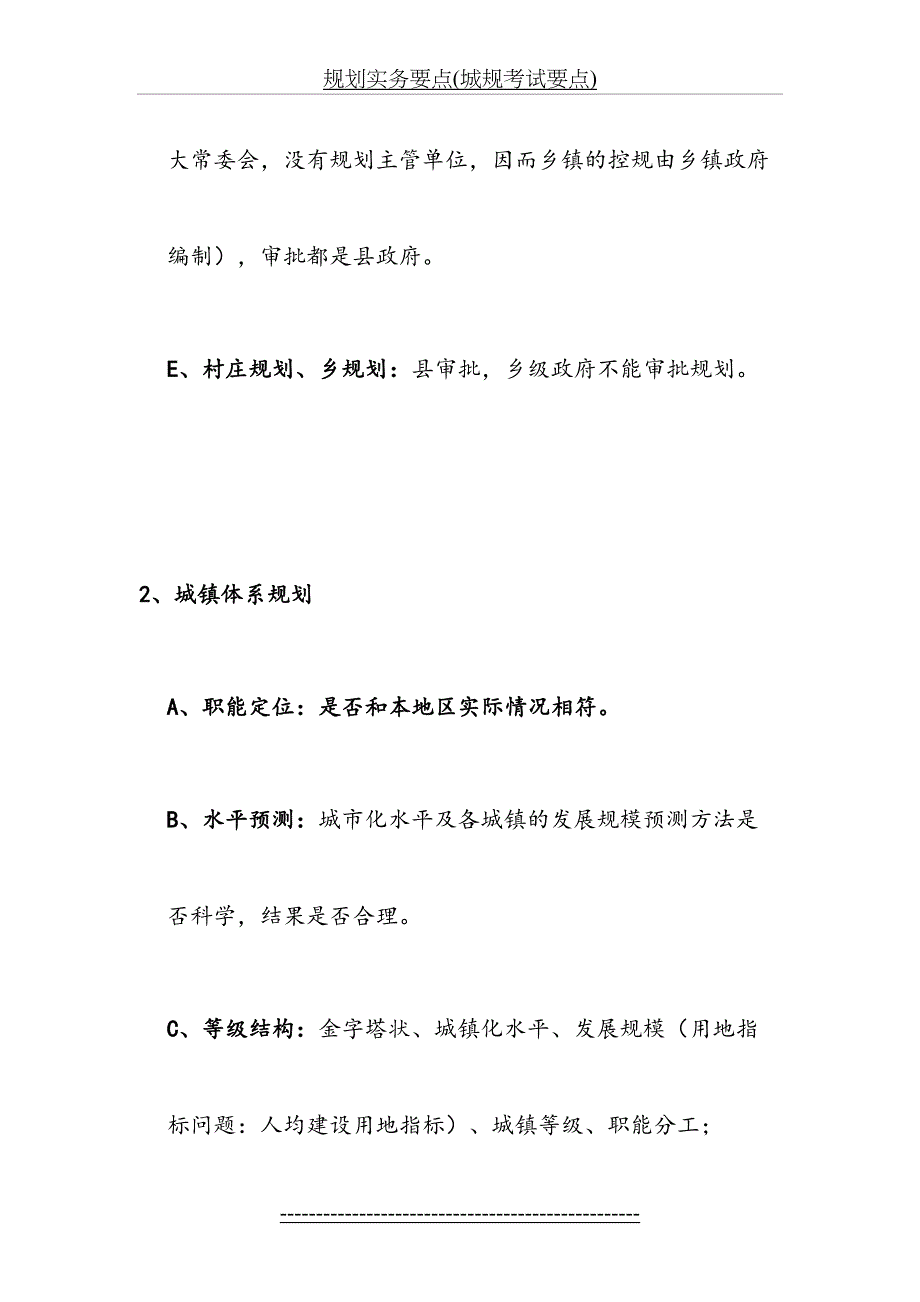 规划实务要点(城规考试要点)
大常委会，没有规划主管单位，因而乡镇的控规由乡镇政府
编制），审批都是县政府。
E、村庄规划、乡规划：县审批，乡级政府不能审批规划。
2、城镇体系规划
A、职能定位：是否和本地区实际情况相符。
B、水平预测：城市化水平及各城镇的发展规模预测方法是
否科学，结果是否合理。
C、等级结构：金字塔状、城镇化水平、发展规模（用地指
标问题：人均建设用地指标）、城镇等级、职能分工；
--------------------------------------------------